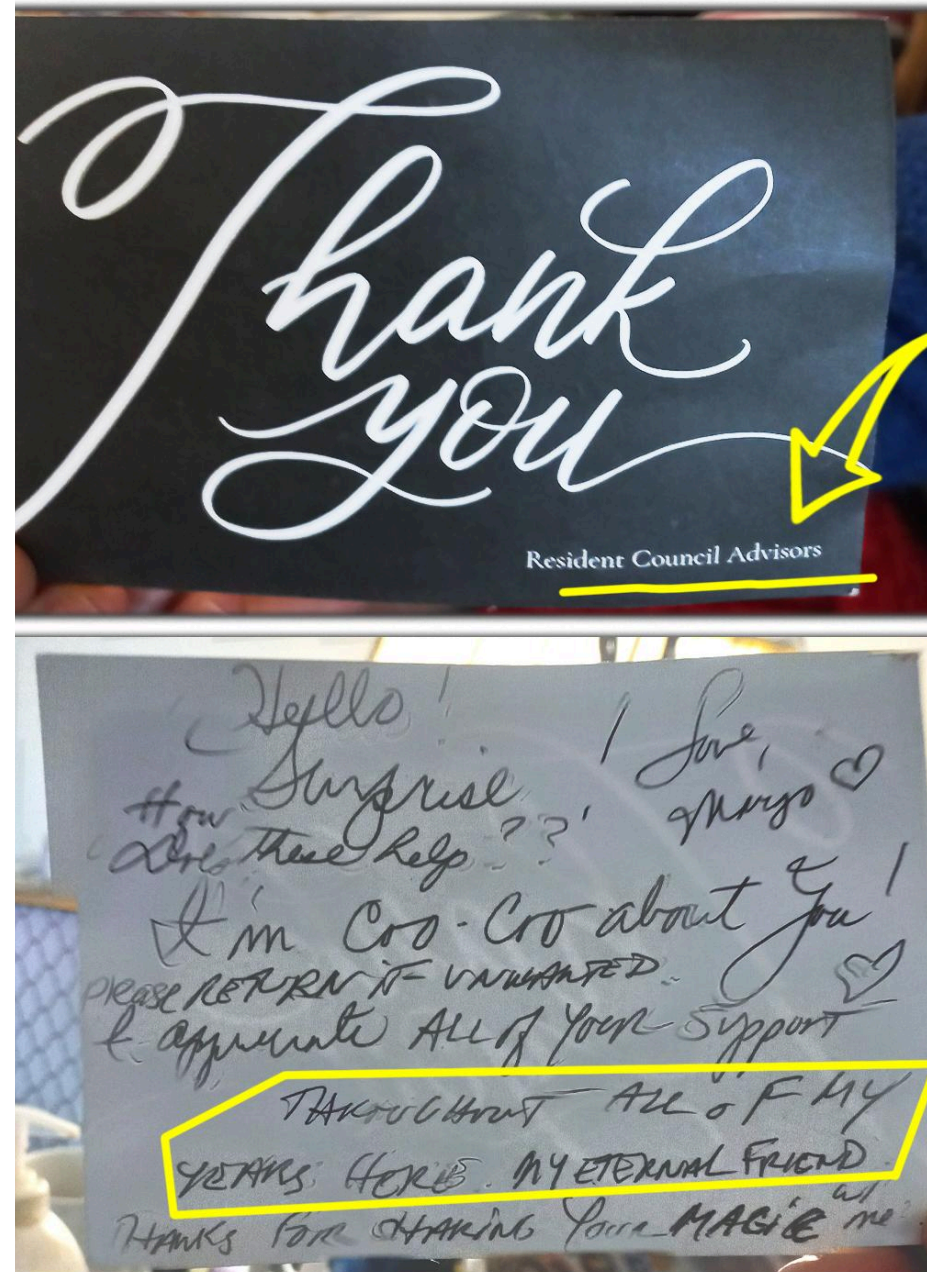 Thank
you
Resident Council Advisors
Hello!
Surprise! Love,
How Margo
Does these help??
I'm Coo-Coo about You!
please RETURN if UNWANTED.
I appreciate ALL of Your Support
THROUGHOUT ALL OF MY
YEARS HERE. MY ETERNAL FRIEND.
THANKS FOR SHARING Your MAGIC w/ me